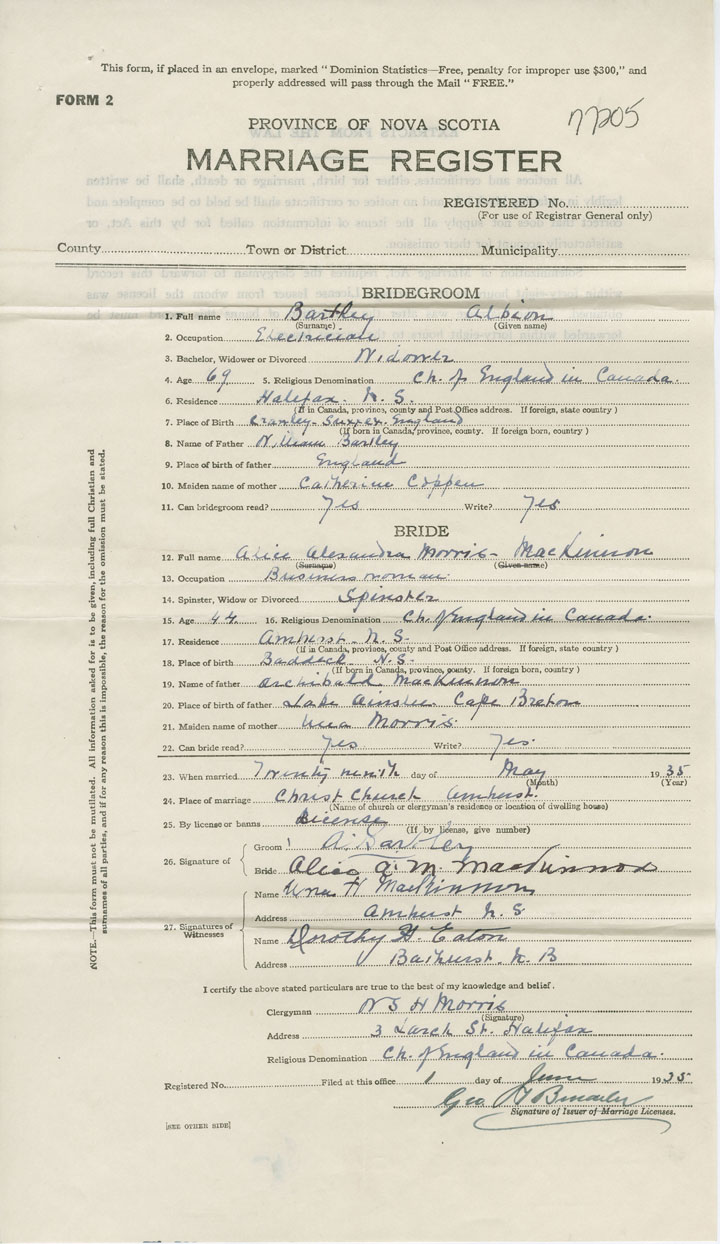 This form, if placed in an envelope, marked "Dominion Statistics—Free, penalty for improper use $300," and
properly addressed will pass through the Mail "FREE."
FORM 2
77205
PROVINCE OF NOVA SCOTIA
MARRIAGE REGISTER
REGISTERED No.
(For use of Registrar General only)
County Town or District Municipality
BRIDEGROOM
1. Full name Bartley Albion
(Surname) (Given name)
2. Occupation Electrician
3. Bachelor, Widower or Divorced Widower
4. Age 69 5. Religious Denomination Ch. of England in Canada.
6. Residence Halifax. N. S.
(If in Canada, province, county and Post Office address. If foreign, state country)
7. Place of Birth Sussex. England
(If born in Canada, province, county. If foreign born, country)
8. Name of Father William Bartley
9. Place of birth of father England
10. Maiden name of mother Catherine Coppen
11. Can bridegroom read? Yes Write? Yes
BRIDE
12. Full name Alice Alexandra Morris- MacKinnon
(Surname) (Given name)
13. Occupation Business woman.
14. Spinster, Widow or Divorced Spinster
15. Age 44. 16. Religious Denomination Ch. of England in Canada.
17. Residence Amherst. N. S.
(If in Canada, province, county and Post Office address. If foreign, state country)
18. Place of birth Baddeck. N. S.
(If born in Canada, province, county. If foreign born, country)
19. Name of father Archibald MacKinnon
20. Place of birth of father Lake Ainslie Cape Breton
21. Maiden name of mother Una Morris.
22. Can bride read? Yes Write? Yes.
23. When married Twenty ninth day of May 1935
(Month) (Year)
24. Place of marriage Christ Church Amherst.
(Name of church or clergyman's residence or location of dwelling house)
25. By license or banns License
(If by license, give number)
26. Signature of
Groom A. Bartley
Bride Alice A. M. MacKinnon
27. Signatures of Witnesses
Name Una H MacKinnon
Address Amherst N. S.
Name Dorothy H Eaton
Address Bathurst. N. B
I certify the above stated particulars are true to the best of my knowledge and belief.
Clergyman W S H Morris
(Signature)
Address 3 Larch St. Halifax
Religious Denomination Ch. of England in Canada.
Registered No. Filed at this office 1 day of June 1935
Geo
Signature of Issuer of Marriage Licenses.
[SEE OTHER SIDE]
NOTE.—This form must not be mutilated. All information asked for is to be given, including full Christian and
surnames of all parties, and if for any reason this is impossible, the reason for the omission must be stated.